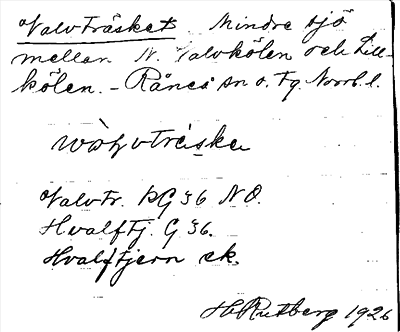 Valvträsket Mindre sjö
mellan N. Valvkölen och Lill-
kölen. - Råneå sn o. Tg. Norrb. l.
Valvtr. KG 36 NO.
Hvalftj. G 36.
Hvalftjern ek.
H Rutberg 1926